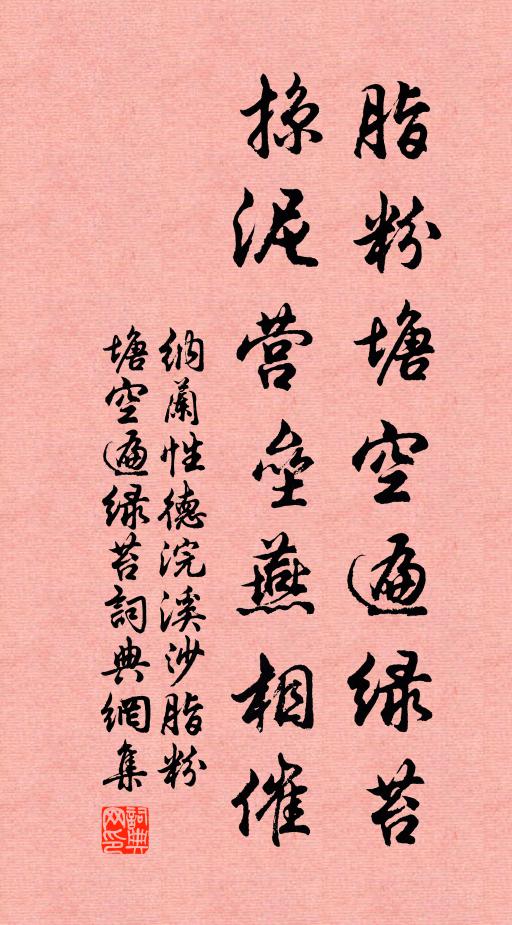 脂粉塘空遍绿苔
掠泥营垒燕相催
纳蘭性德浣溪沙脂粉
塘空遍绿苔詞典網集
詞典网印